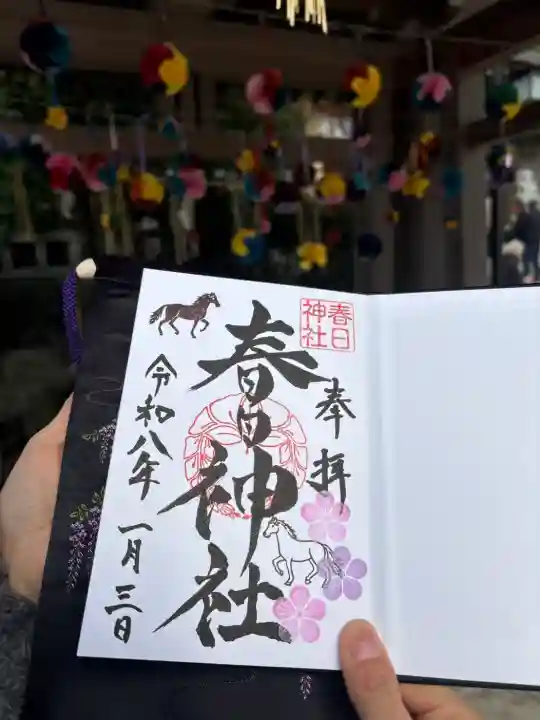 春日
神社
奉拝
春日神社
令和八年 一月三日